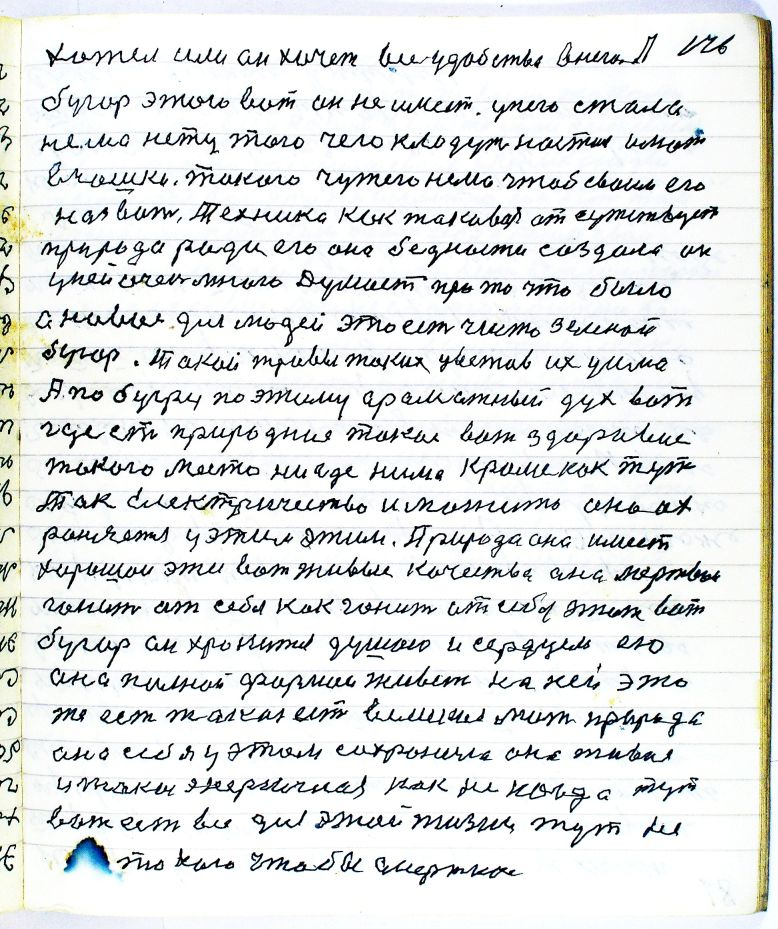 176
хотел или он хочет все удобства в него. А
бугор этого вот он не имеет. у него стала
нема нету того чего кладут настил имат
в чашки. такого чужего нема чтоб своим его
назват. Техника как таковая от существует
природа ради его она бедности создала он
у ней очен много Думает про то что было
а новые для людей это ест чисто земной
бугор. Такой травы таких цветов их уйма
А по бугру по этому араматный дух вот
где ест природние такое вот здоравие
такого место нигде нима кроме как тут
Так електричество и магнито оно ох
раняется у этим этим. Природа она имеет
хорошои эти вот живые качества она мертвые
гонит от себя как гонит от себя этот вот
бугор он хронится душаю и сердцем ею
она полной формой живет на ней это
же ест такая ест великия мат природа
она себя у этом сохронила она живая
и така энергичная как не когда тут
вот ест все для этой жизни тут не
то кого чтобы смертное